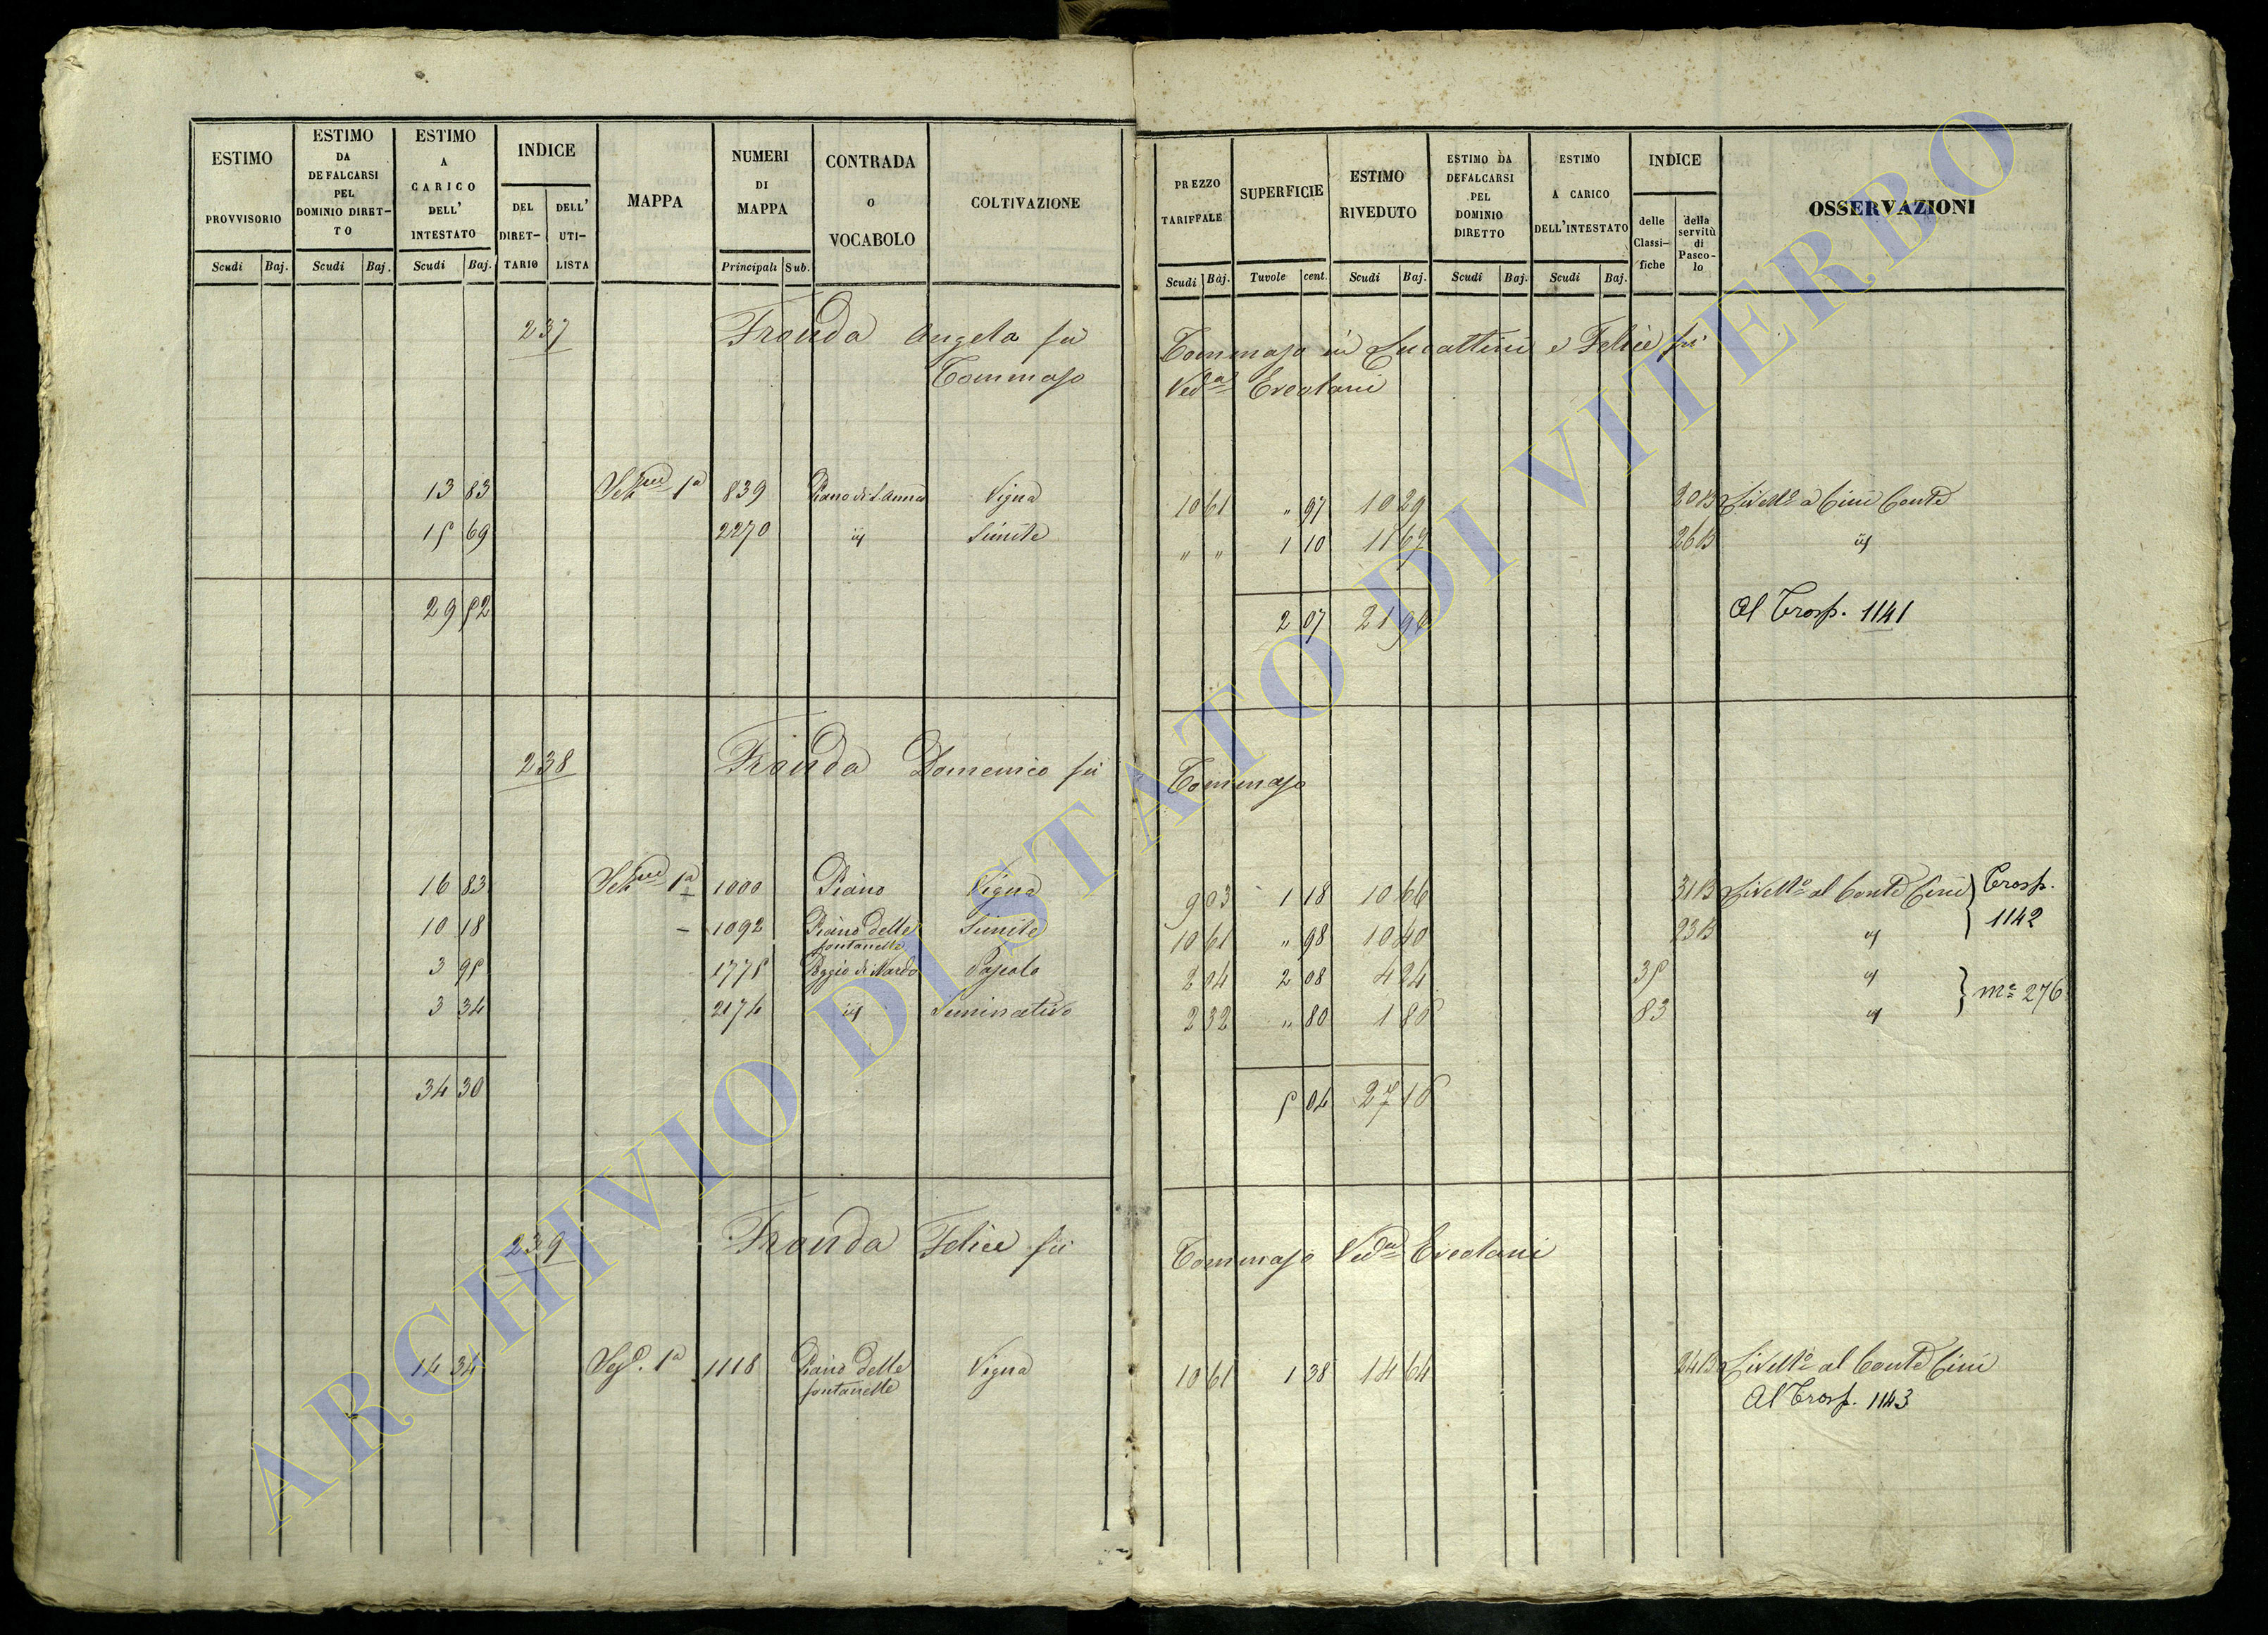 ESTIMO PROVVISORIO
ESTIMO DA DEFALCARSI PEL DOMINIO DIRET-TO
ESTIMO A CARICO DELL' INTESTATO
INDICE
DEL DIRET-TARIO
DELL' UTI-LISTA
MAPPA
NUMERI DI MAPPA
CONTRADA O VOCABOLO
COLTIVAZIONE
PREZZO TARIFFALE
SUPERFICIE
ESTIMO RIVEDUTO
ESTIMO DA DEFALCARSI PEL DOMINIO DIRETTO
ESTIMO A CARICO DELL'INTESTATO
INDICE
delle Classi-fiche
della servitù di Pasco-lo
OSSERVAZIONI
Scudi Baj. Scudi Baj. Scudi Baj. Principali Sub. Scudi Baj. Tavole cent. Scudi Baj. Scudi Baj. Scudi Baj.
237 Fronda Angela fu Tommaso in Lucattini e Felice fu
Tommaso Ved.a Ercolani
13 83 1a 839 Piano di S. Anna Vigna 10 61 " 97 10 29 20 B Livell.o a Cini Conte
15 69 2270 id Simile " " 1 10 11 67 26 B id
29 52 2 07 21 96 Al Trasp. 1141
238 Fronda Domenico fu Tommaso
16 83 1a 1000 Piano Vigna 9 03 1 18 10 66 31 B Livell.o al Conte Cini } Trasp. 1142
10 18 1092 Piano delle fontanelle Simile 10 61 " 98 10 40 23 B id
3 95 1775 Poggio di Nardo Pascolo 2 04 2 08 4 24 35 id } M.e 276
3 34 2174 id Seminativo 2 32 " 80 1 86 83 id
34 30 5 04 27 16
239 Fronda Felice fu Tommaso Ved.a Ercolani
14 34 1a 1118 Piano delle fontanelle Vigna 10 61 1 38 14 64 24 B Livell.o al Conte Cini
Al Trasp. 1143
ARCHIVIO DI STATO DI VITERBO